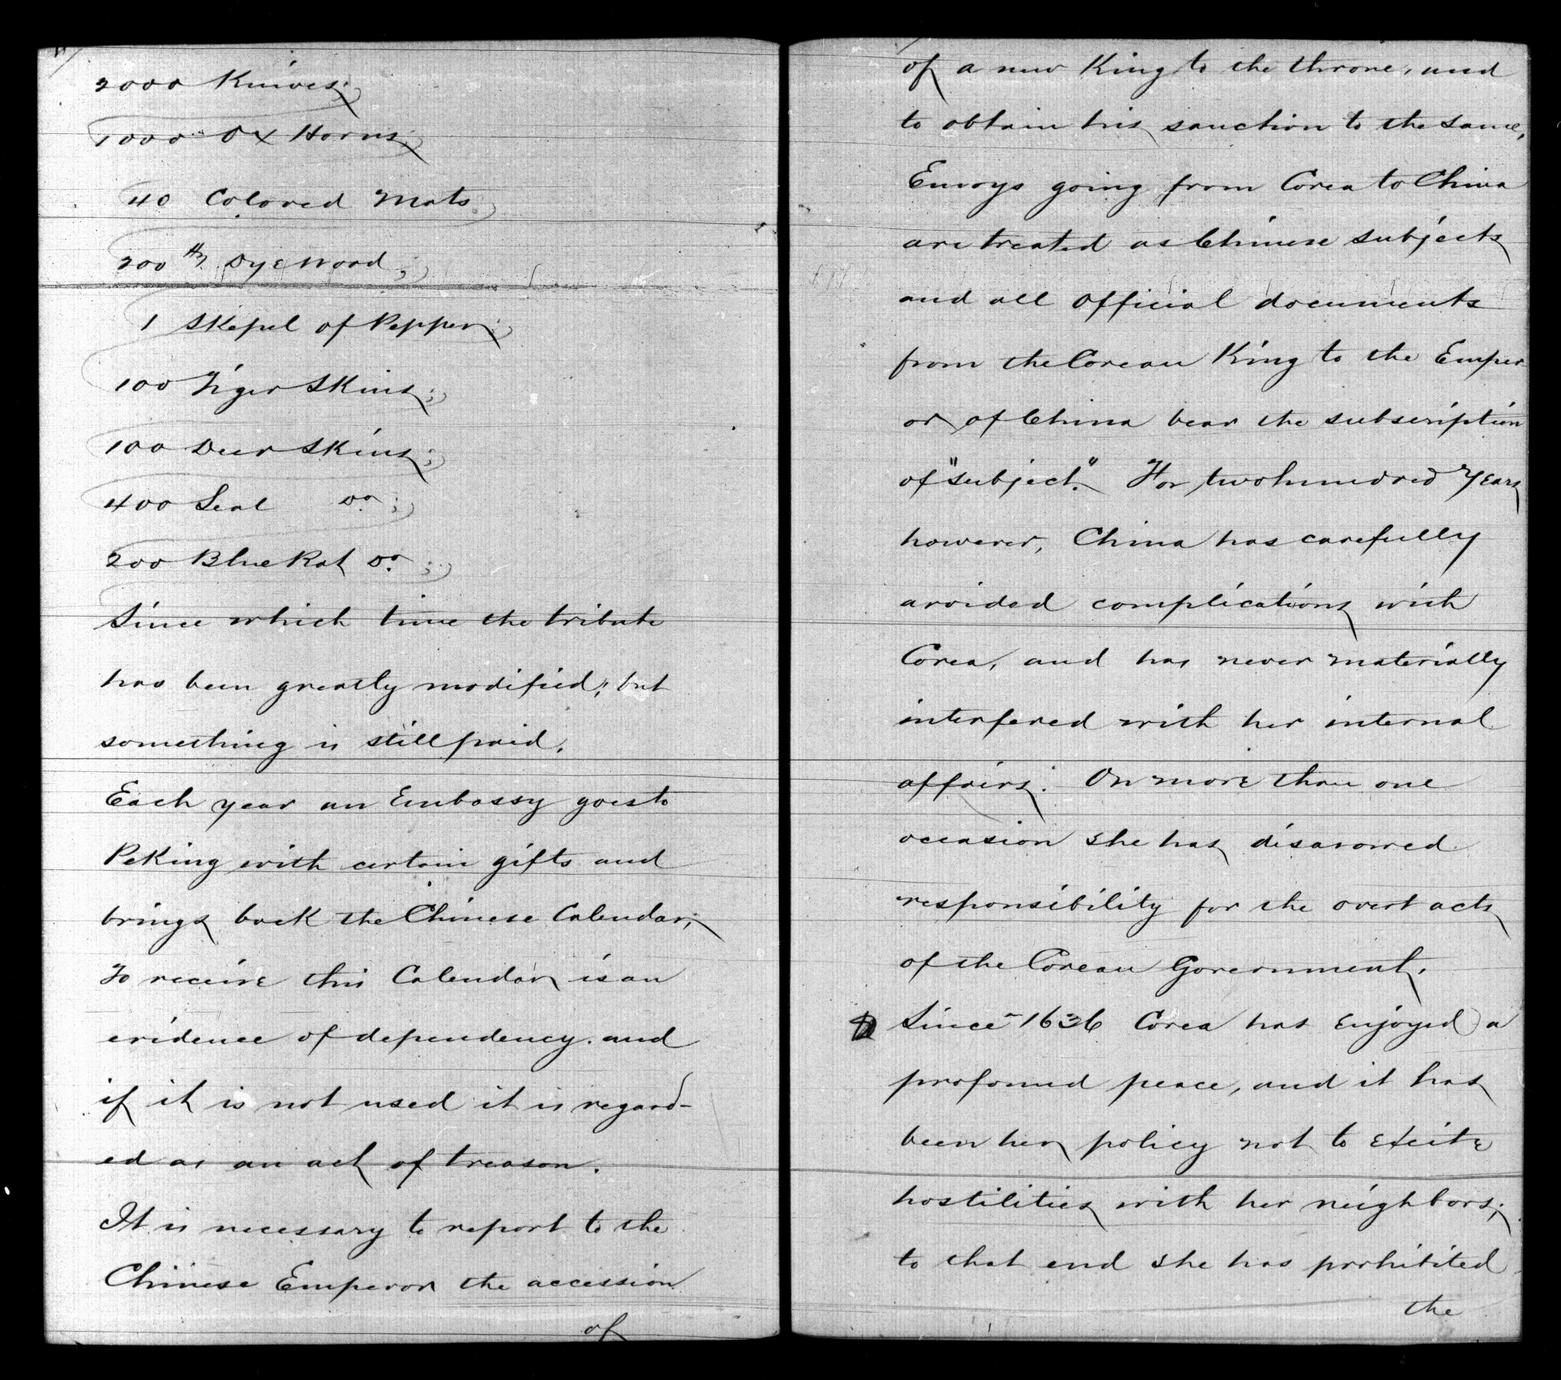 2000 Knives;
1000 Ox Horns;
40 Colored Mats
200 lbs Dyewood;
1 Skepel of Pepper;
100 Tiger Skins;
100 Deer Skins;
400 Seal Do.;
200 Blue Rat Do.;
Since which time the tribute
has been greatly modified; but
something is still paid.
Each year an Embassy goes to
Peking with certain gifts and
brings back the Chinese Calendar;
To receive this Calendar is an
evidence of dependency. and
if it is not used it is regard-
ed as an act of treason.
It is necessary to report to the
Chinese Emperor the accession
of
of a new King to the throne, and
to obtain his sanction to the same,
Envoys going from Corea to China
are treated as Chinese subjects
and all official documents
from the Corean King to the Emper
or of China bear the subscription
of "subject." For two hundred years
however, China has carefully
avoided complications with
Corea, and has never materially
interfered with her internal
affairs. On more than one
occasion she has disavowed
responsibility for the overt acts
of the Corean Government.
Since 1636 Corea has enjoyed a
profound peace, and it has
been her policy not to excite
hostilities with her neighbors;
to that end she has prohibited
the